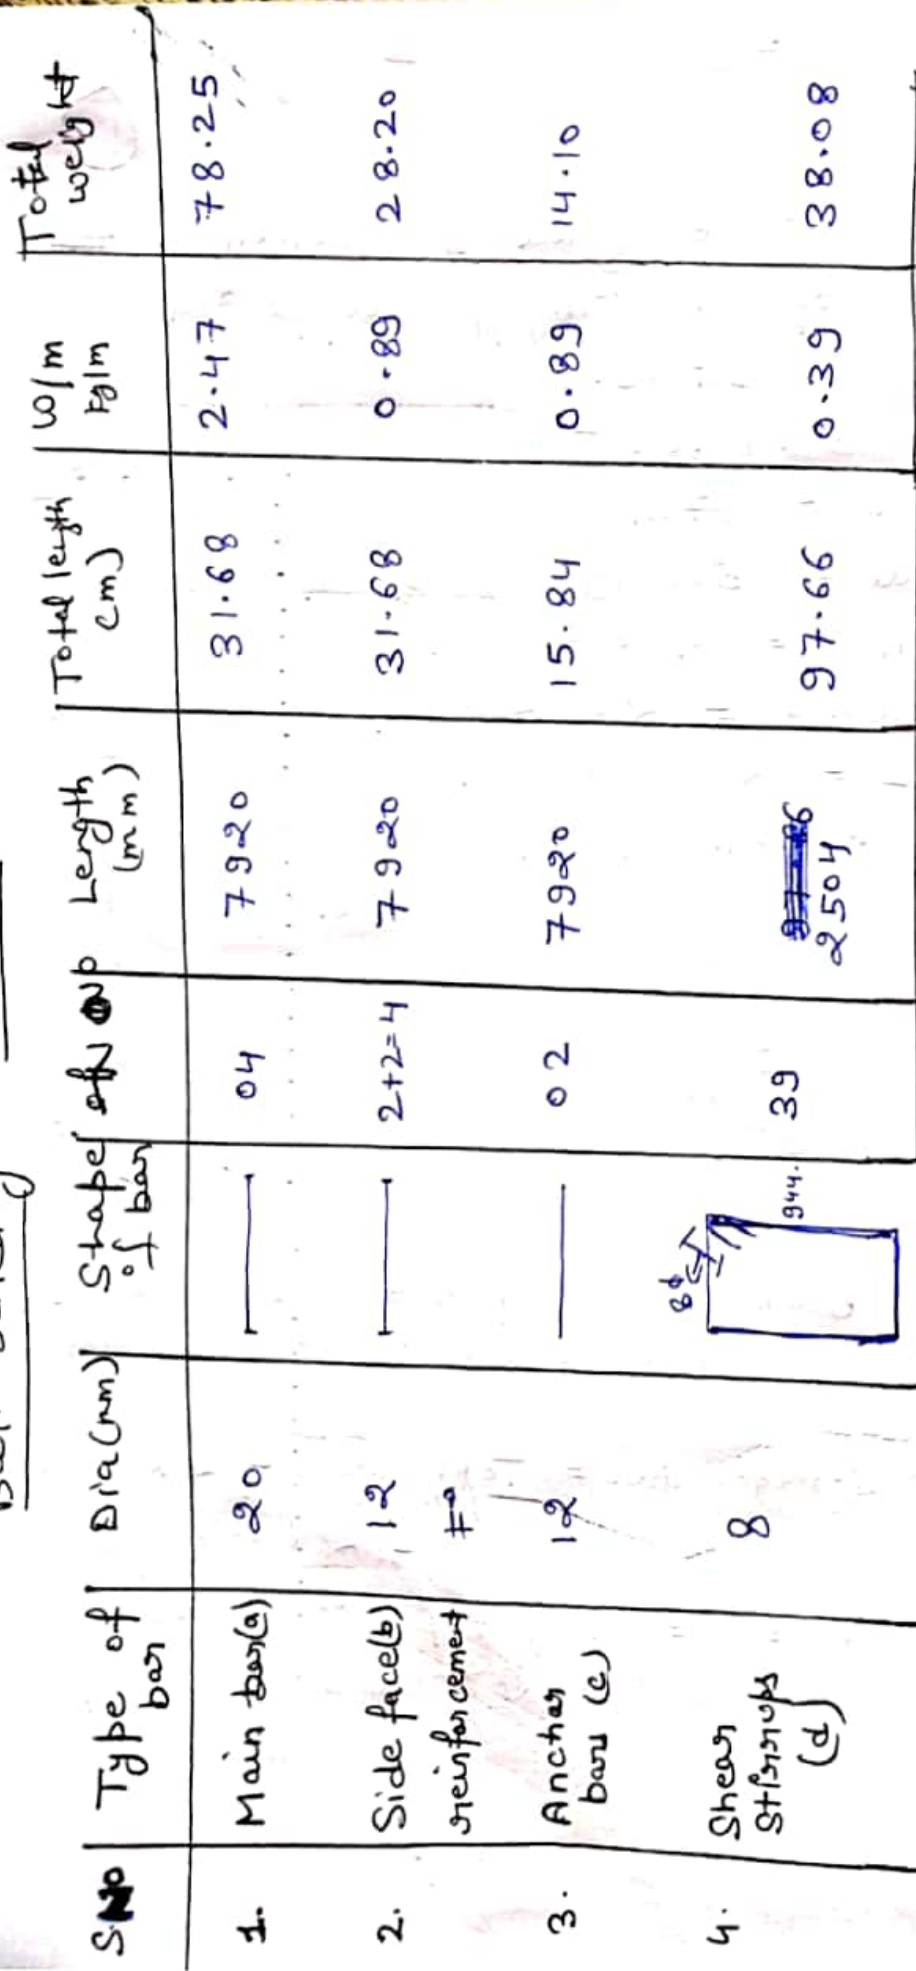 S.No Type of bar Dia (mm) Shape of bar No Length (mm) Total length (m) W/m kg/m Total weight
1. Main bar(a) 20 04 7920 31.68 2.47 78.25
2. Side face(b) reinforcement 12 2+2=4 7920 31.68 0.89 28.20
3. Anchor bars (c) 12 02 7920 15.84 0.89 14.10
4. Shear Stirrups (d) 8 8ϕ 944. 39 2504 97.66 0.39 38.08